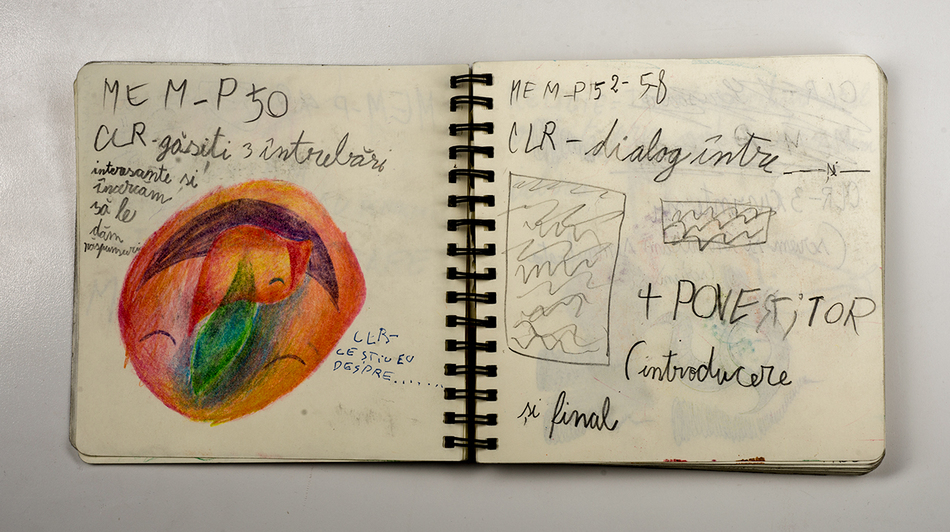 MEM-P50
CLR-găsiti 3 întrebări
interesante și
încercam
să le
dăm
răspunsuri
CLR-
CE ȘTIU EU
DESPRE........
MEM-P52-58
CLR-dialog între ___ și ___
+ POVESTITOR
(introducere
și final